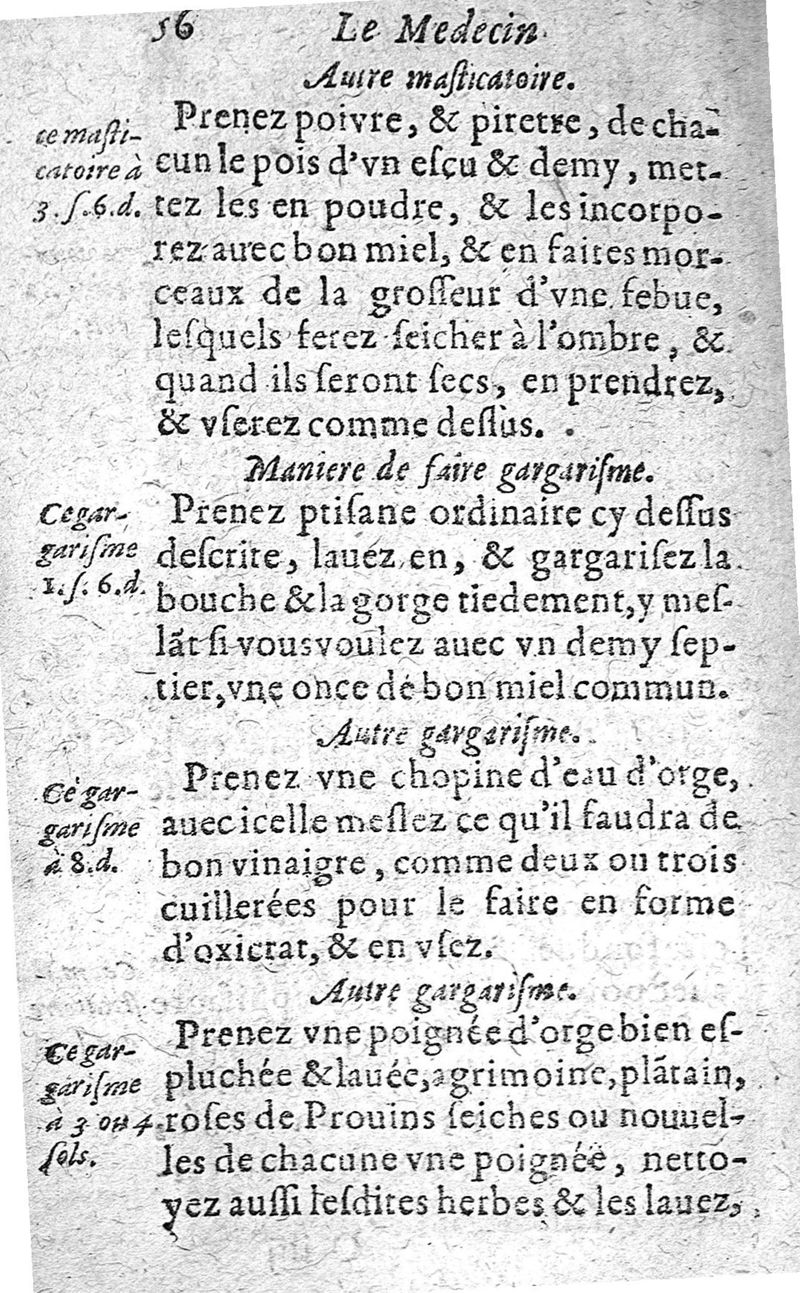 56
Le Medecin
Autre masticatoire.
ce masti-
catoire à
3. ſ. 6. d.
Prenez poivre, & piretre, de cha-
cun le pois d'vn eſcu & demy, met-
tez les en poudre, & les incorpo-
rez auec bon miel, & en faites mor-
ceaux de la groſſeur d'vne febue,
leſquels ferez ſeicher à l'ombre, &
quand ils ſeront ſecs, en prendrez,
& vſerez comme deſſus.
Maniere de faire gargariſme.
Ce gar-
gariſme
1. ſ. 6. d.
Prenez ptiſane ordinaire cy deſſus
deſcrite, lauez en, & gargariſez la
bouche & la gorge tiedement, y meſ-
lãt ſi vous voulez auec vn demy ſep-
tier, vne once de bon miel commun.
Autre gargariſme.
Ce gar-
gariſme
à 8. d.
Prenez vne chopine d'eau d'orge,
auec icelle meſlez ce qu'il faudra de
bon vinaigre, comme deux ou trois
cuillerées pour le faire en forme
d'oxicrat, & en vſez.
Autre gargariſme.
Ce gar-
gariſme
à 3 ou 4
ſols.
Prenez vne poignée d'orge bien eſ-
pluchée & lauée, agrimoine, plãtain,
roſes de Prouins ſeiches ou nouuel-
les de chacune vne poignée, netto-
yez auſſi leſdites herbes & les lauez,